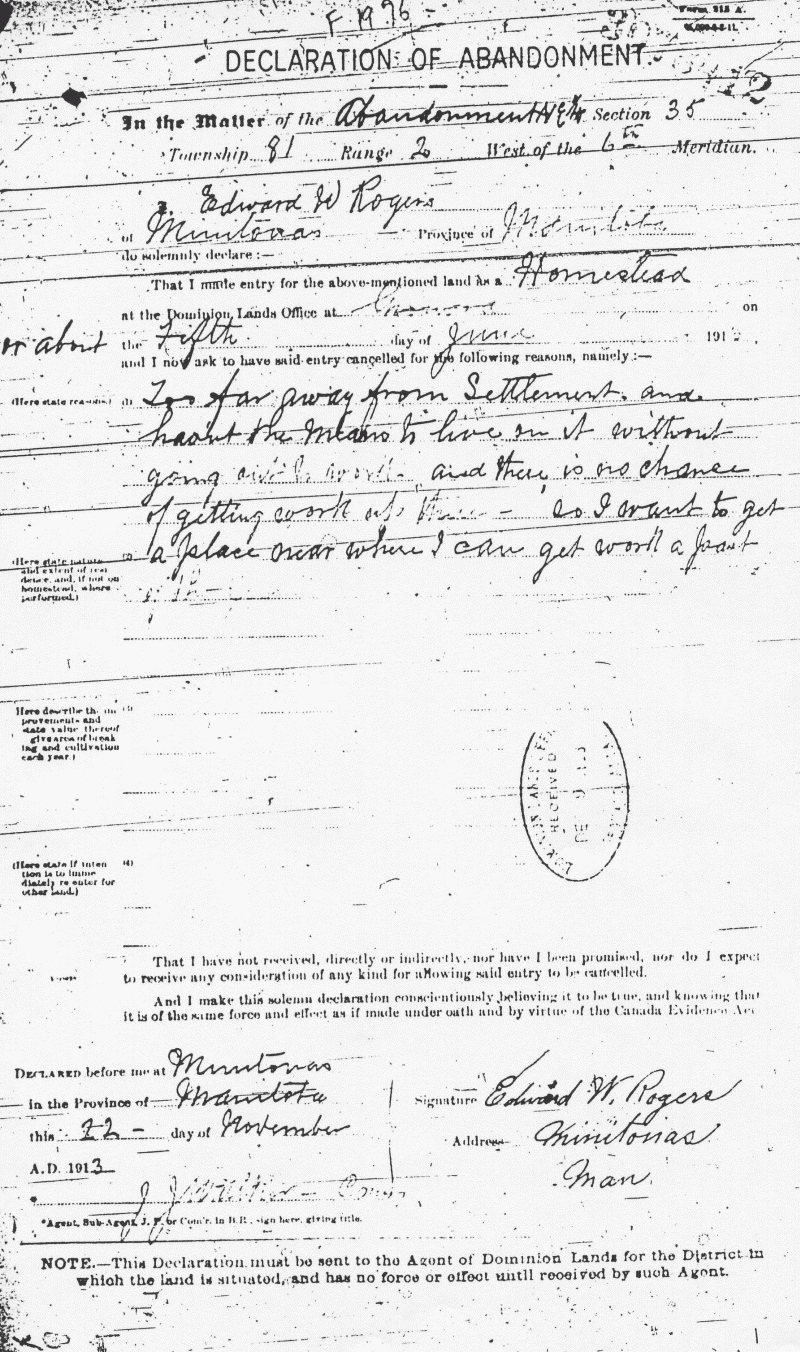 F 1976 -
Form 213 A.
DECLARATION OF ABANDONMENT.
2
In the Matter of the Abandonment N E 1/4 Section 35
Township 81 Range 2 West of the 6th Meridian.
I, Edward W Rogers
of Minitonas Province of Manitoba
do solemnly declare :—
That I made entry for the above-mentioned land as a Homestead
at the Dominion Lands Office at on
or about the Fifth day of June 191
and I now ask to have said entry cancelled for the following reasons, namely :—
(Here state reasons.) (1) Too far away from Settlement. and
hasnt the Means to live on it without
going out to work and there is no chance
of getting work up there - so I want to get
(Here state nature and extent of residence, and, if not on homestead, where performed.) a place near where I can get work a part
(Here describe the improvements and state value thereof give area of breaking and cultivation each year.)
RECEIVED
DE 9
(Here state if intention is to immediately re enter for other land.) (4)
That I have not received, directly or indirectly, nor have I been promised, nor do I expect
to receive any consideration of any kind for allowing said entry to be cancelled.
And I make this solemn declaration conscientiously believing it to be true, and knowing that
it is of the same force and effect as if made under oath and by virtue of the Canada Evidence Act
DECLARED before me at Minitonas
in the Province of Manitoba
this 22 - day of November
A.D. 1913
Signature Edward W. Rogers
Address Minitonas
Man.
*Agent, Sub-Agent, J. P. or Com'r. in B.R., sign here, giving title.
NOTE.—This Declaration must be sent to the Agent of Dominion Lands for the District in
which the land is situated, and has no force or effect until received by such Agent.